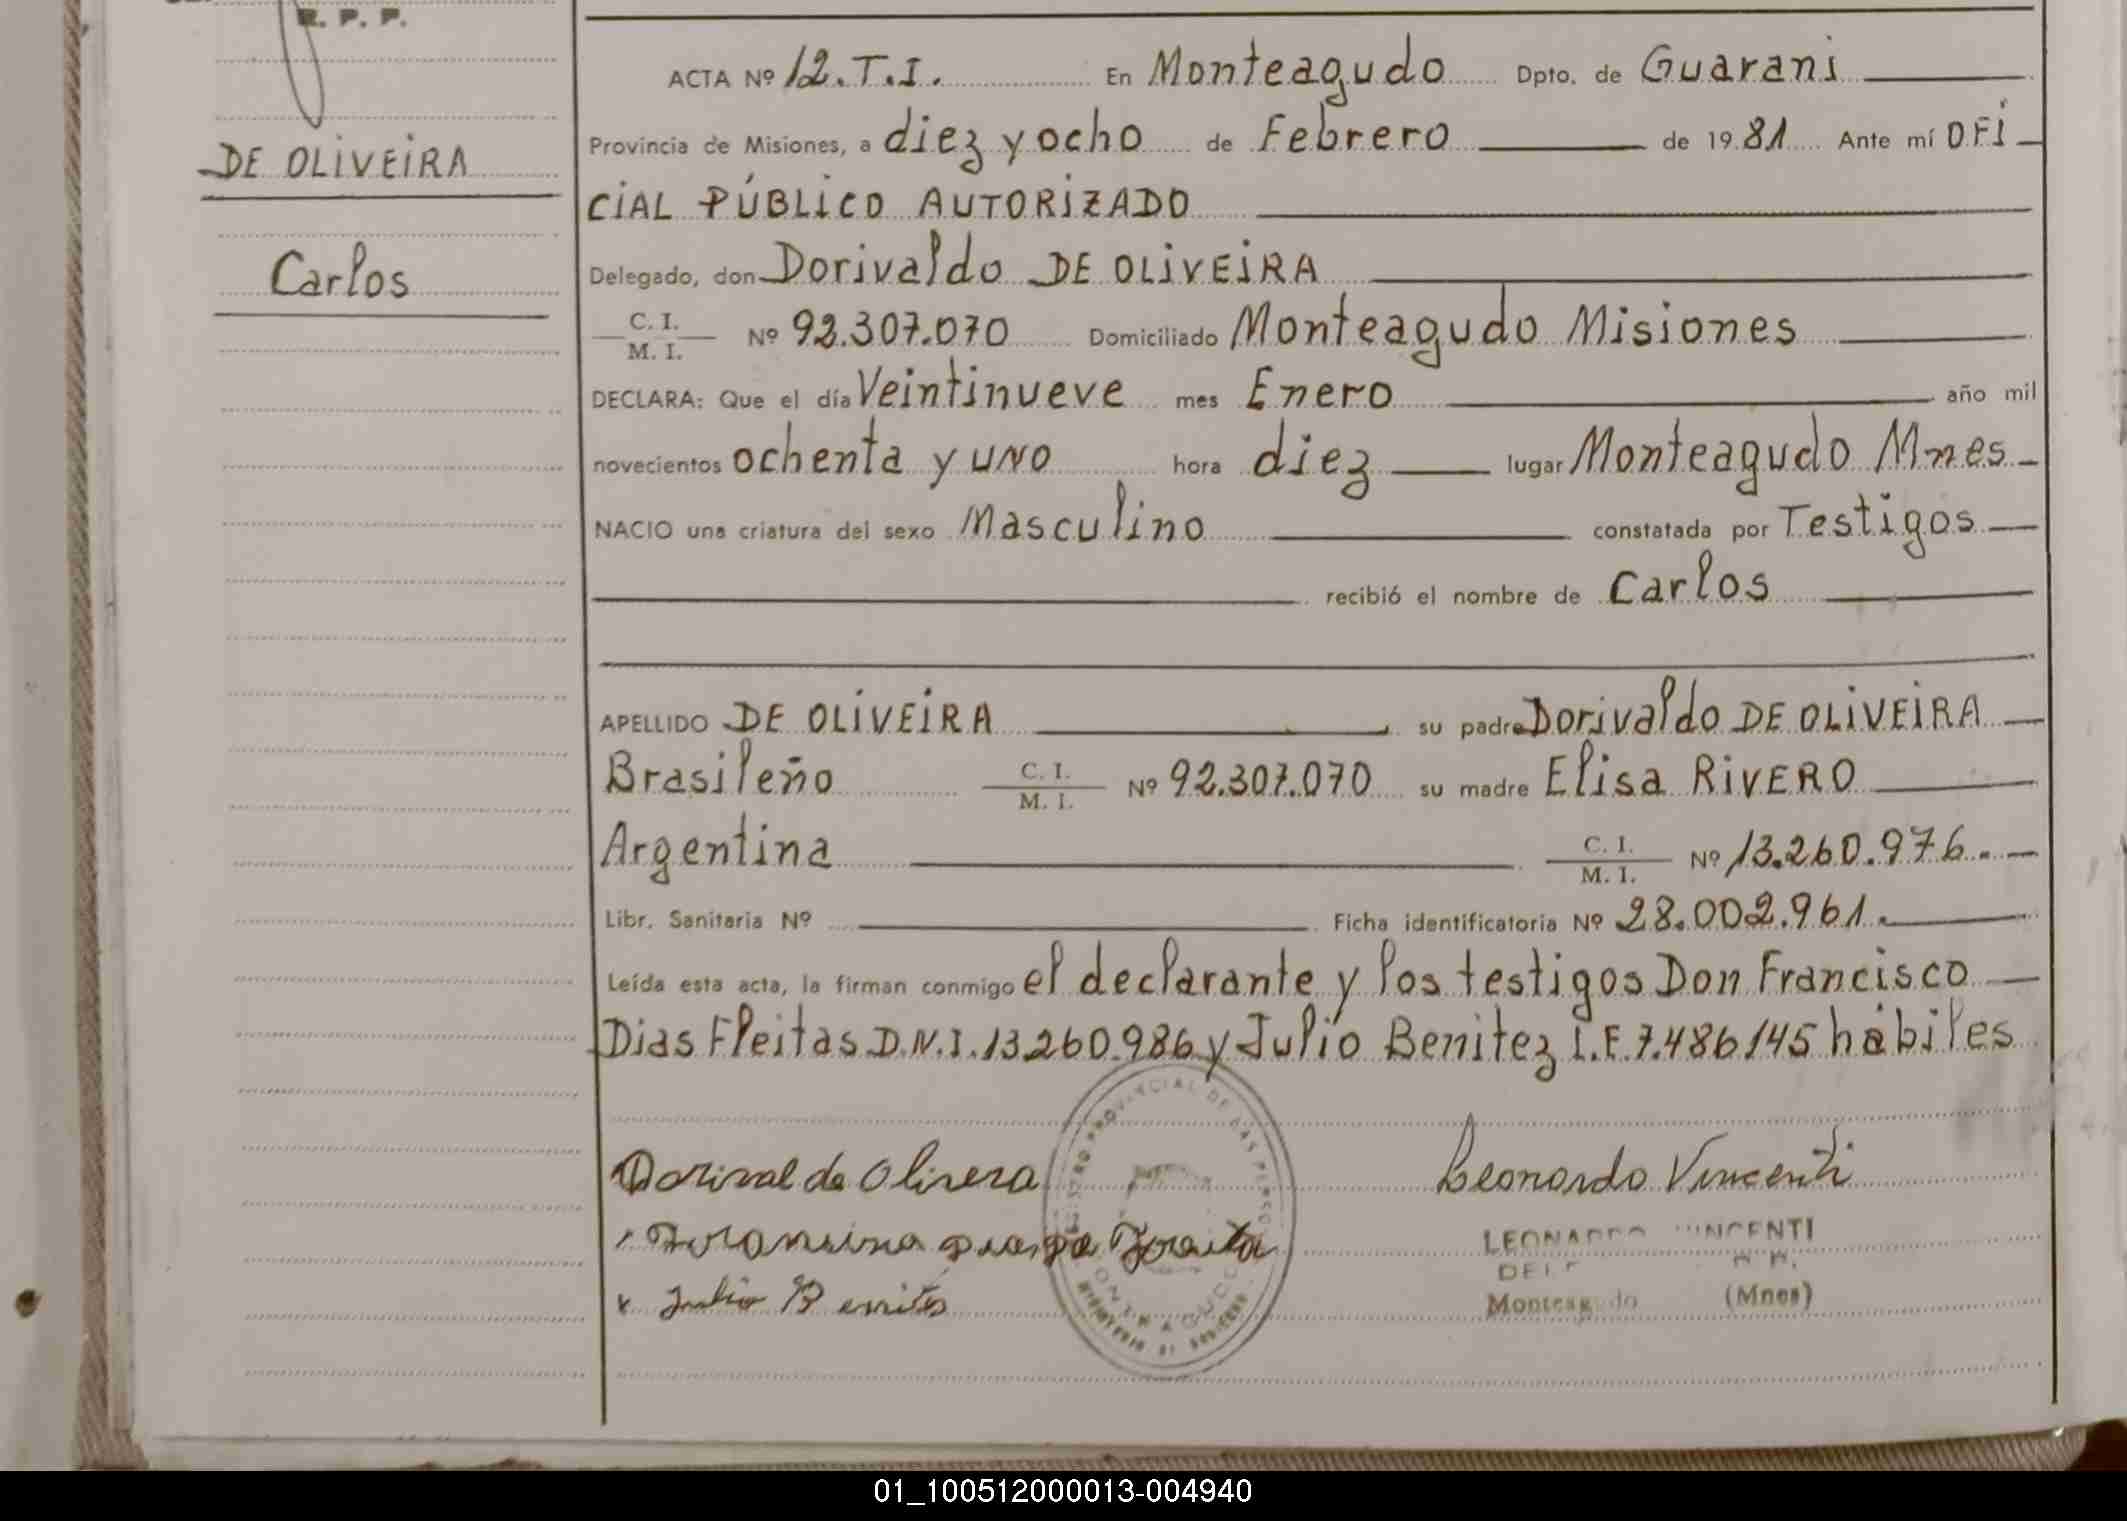 R. P. P.
DE OLIVEIRA
Carlos
ACTA Nº 12.T.I. En Monteagudo Dpto. de Guarani
Provincia de Misiones, a diez y ocho de Febrero de 1981 Ante mí OFI
CIAL PÚBLICO AUTORIZADO
Delegado, don Dorivaldo DE OLIVEIRA
C. I.
M. I. Nº 92.307.070 Domiciliado Monteagudo Misiones
DECLARA: Que el día Veintinueve mes Enero año mil
novecientos ochenta y uno hora diez lugar Monteagudo Mnes
NACIO una criatura del sexo Masculino constatada por Testigos
recibió el nombre de Carlos
APELLIDO DE OLIVEIRA su padre Dorivaldo DE OLIVEIRA
Brasileño C. I.
M. I. Nº 92.307.070 su madre Elisa RIVERO
Argentina C. I.
M. I. Nº 13.260.976.
Libr. Sanitaria Nº Ficha identificatoria Nº 28.002.961.
Leída esta acta, la firman conmigo el declarante y los testigos Don Francisco
Dias Fleitas D.N.I. 13.260.986 y Julio Benitez L.E. 7.486145 hábiles
Dorival de Olivera Leonardo Vincenti
LEONARDO VINCENTI
Julio Benites
Monteagudo (Mnes)
01_100512000013-004940